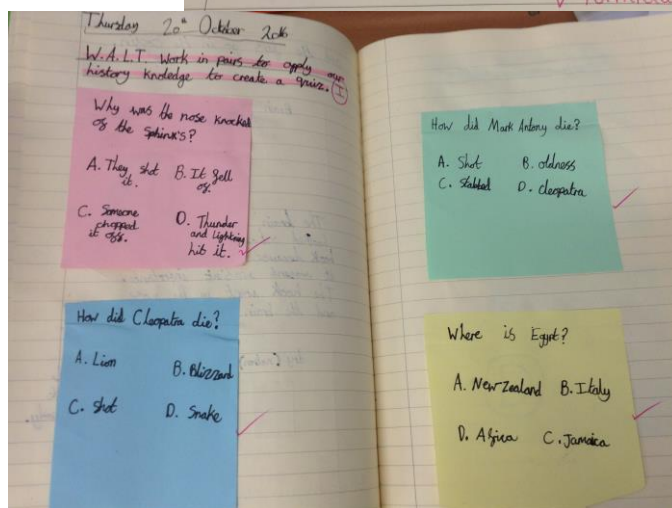 Thursday 20th October 2016
W.A.L.T Work in pairs to apply our
history knoledge to create a quiz. I
Why was the nose knocked
of the Sphinx's?
A. They shot it.
B. It fell of.
C. Someone chopped it off.
D. Thunder and Lightning hit it.
How did Cleopatra die?
A. Lion
B. Blizzard
C. Shot
D. Snake
How did Mark Antony die?
A. Shot
B. oldness
C. Stabbed
D. cleopatra
Where is Egypt?
A. New Zealand
B. Italy
D. Africa
C. Jamaica